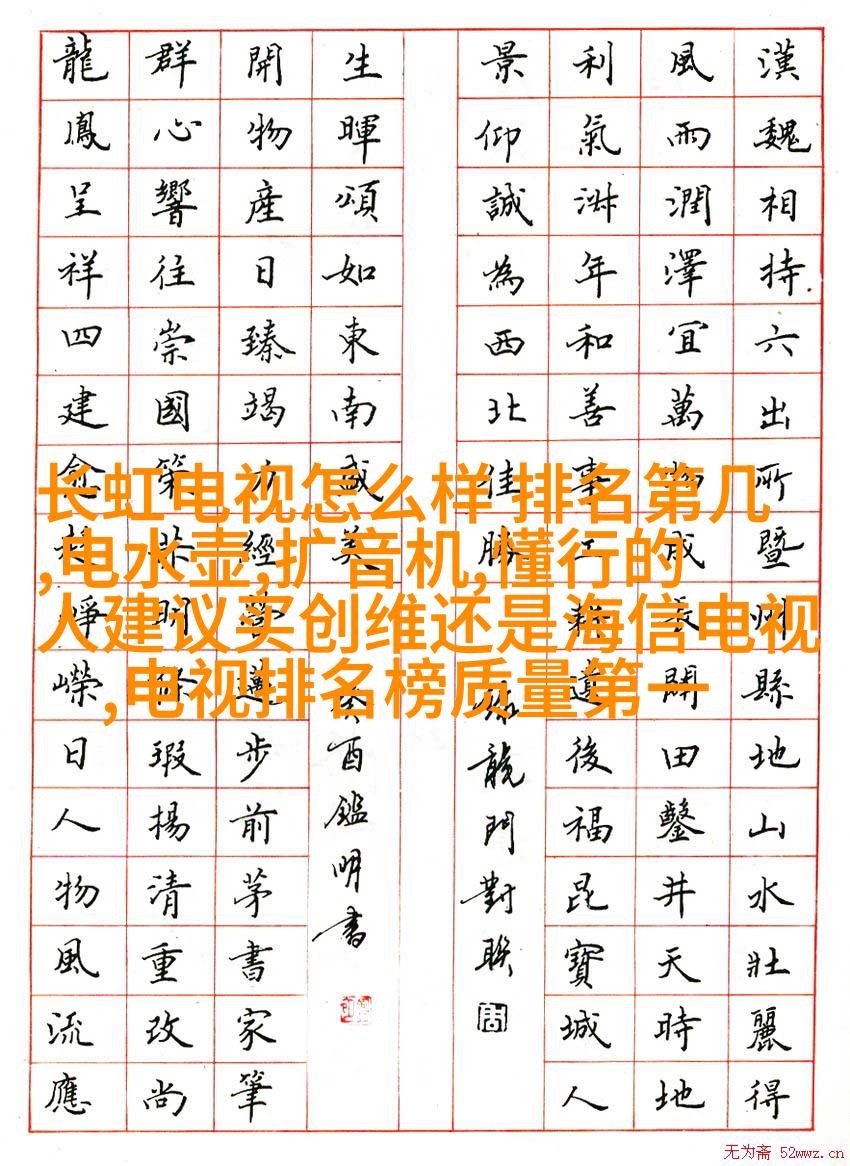 漢魏相持六出所暨州縣地山水壯麗得
風雨潤澤宜萬物成長開田鑿井天時地
利氣年和善事工耕遺後福昆寶城人
景仰誠為西北佳勝
龍門對聯
生暉頌如東南盛美
癸酉鑑明書
開物產日臻竭力經營邁步前茅書家筆
群心響往崇國策世明滌瑕揚清重改尚
龍鳳呈祥四建愈崢嶸日人物風流應
长虹电视怎么样 排名第几
,电水壶,扩音机,懂行的
人建议买创维还是海信电视
,电视排名榜质量第一
无为斋 52wwz.cn